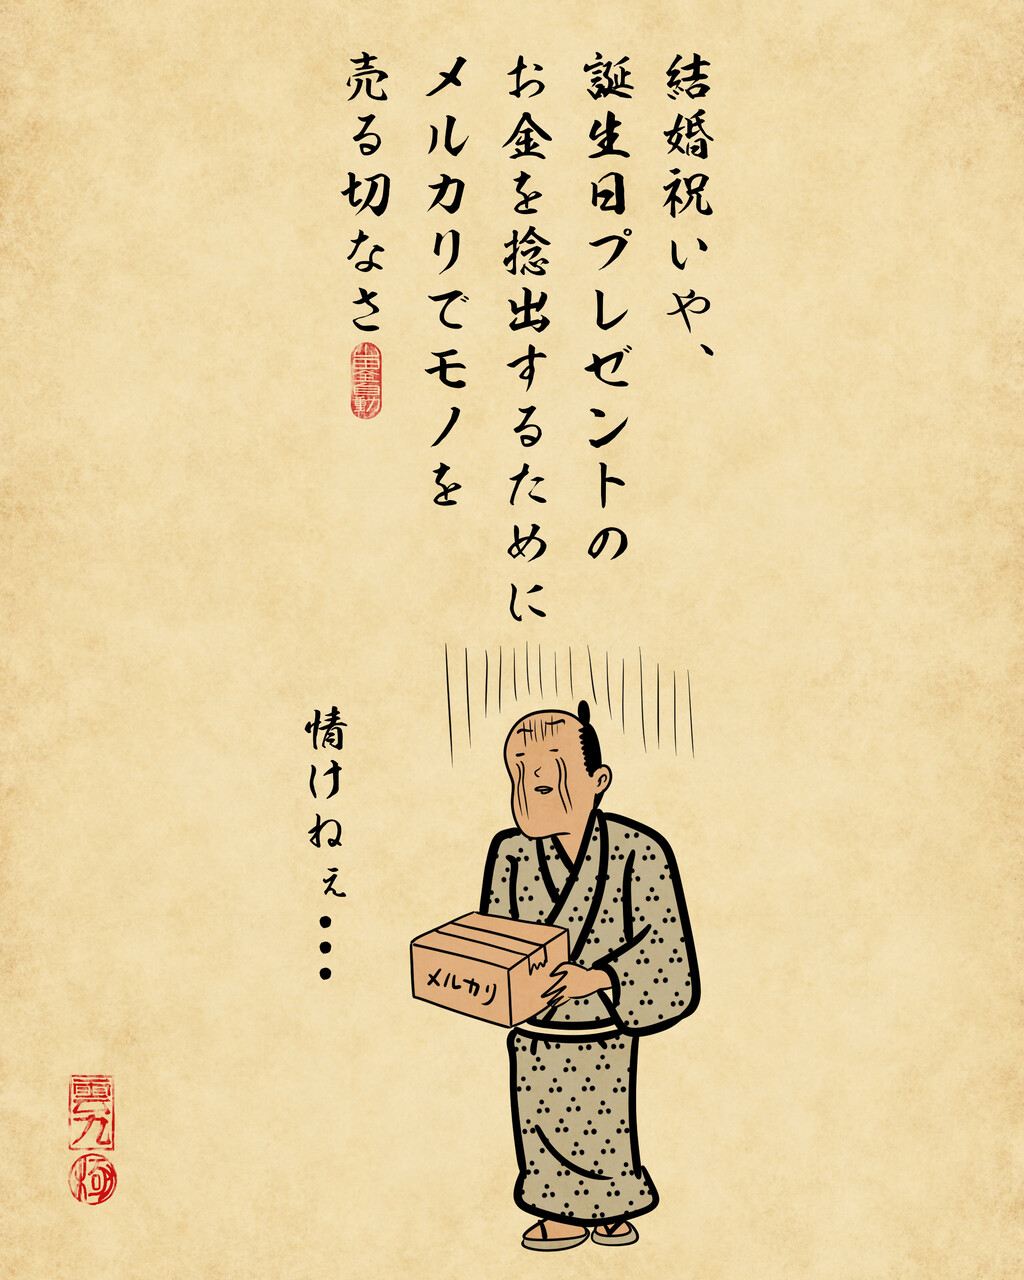 結婚祝いや、
誕生日プレゼントの
お金を捻出するために
メルカリでモノを
売る切なさ
情けねぇ・・・
メルカリ